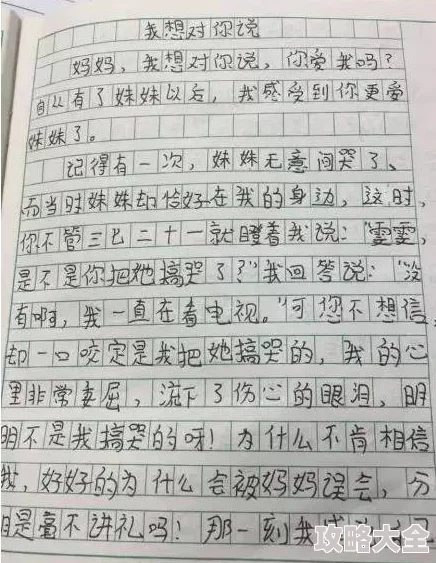 我想对你说
妈妈，我想对你说，你爱我吗？
自从有了妹妹以后，我感受到你更爱
妹妹了。
记得有一次，妹妹无意间哭了，
而当时妹妹却恰好在我的身边，这时，
你不管三七二十一就瞪着我说：“雯雯，
是不是你把她搞哭了？”我回答说：“没
有啊，我一直在看电视。”可您不想信，
却一口咬定是我把她搞哭的，我的心
里非常委屈，流下了伤心的眼泪，明
明不是我搞哭的呀！为什么不肯相信
我，好好的为什么会被妈妈误会，分
明是毫不讲礼吗！那一刻我
攻略大全